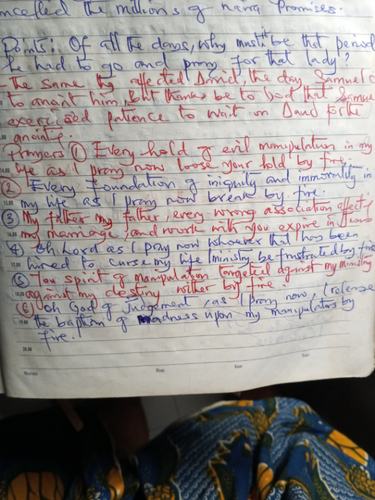 cancelled the millions of naira promises.
Points: Of all the days, why must it be that period
he had to go and pray for that lady?
- the same thg affected David, the day Samuel c
to anoint him, but thanks be to God that Samue
exercised patience to wait on David for the
anointing.
Prayers ① Every hold of evil manipulation in my
life as I pray now loose your hold by fire.
② Every foundation of iniquity and immorality in
my life as I pray now break by fire.
③ My father my father, every wrong association affectg
my marriage, and work with you expire in
4) Oh Lord as I pray now whoever that has been
hired to curse my life ministry be frustrated by fire
⑤ You spirit of manipulation targeted against my ministry
against my destiny wither by fire.
⑥ Ooh God of Judgement, as I pray now, I release
the baptism of madness upon my manipulators by
fire.